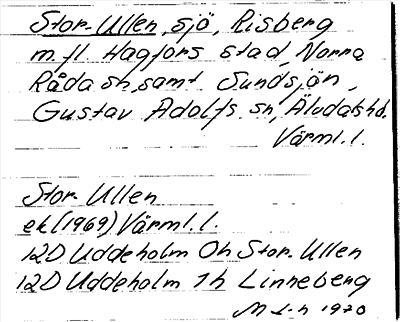 Stor-Ullen, sjö, Risberg
m.fl. Hagfors stad, Norra
Råda sn, samt Sundsjön,
Gustav Adolfs sn, Älvdals hd.
Värml.l.
Stor-Ullen
ek (1969) Värml.l.
12D Uddeholm 0h Stor-Ullen
12D Uddeholm 1h Linneberg
M L-n 1970